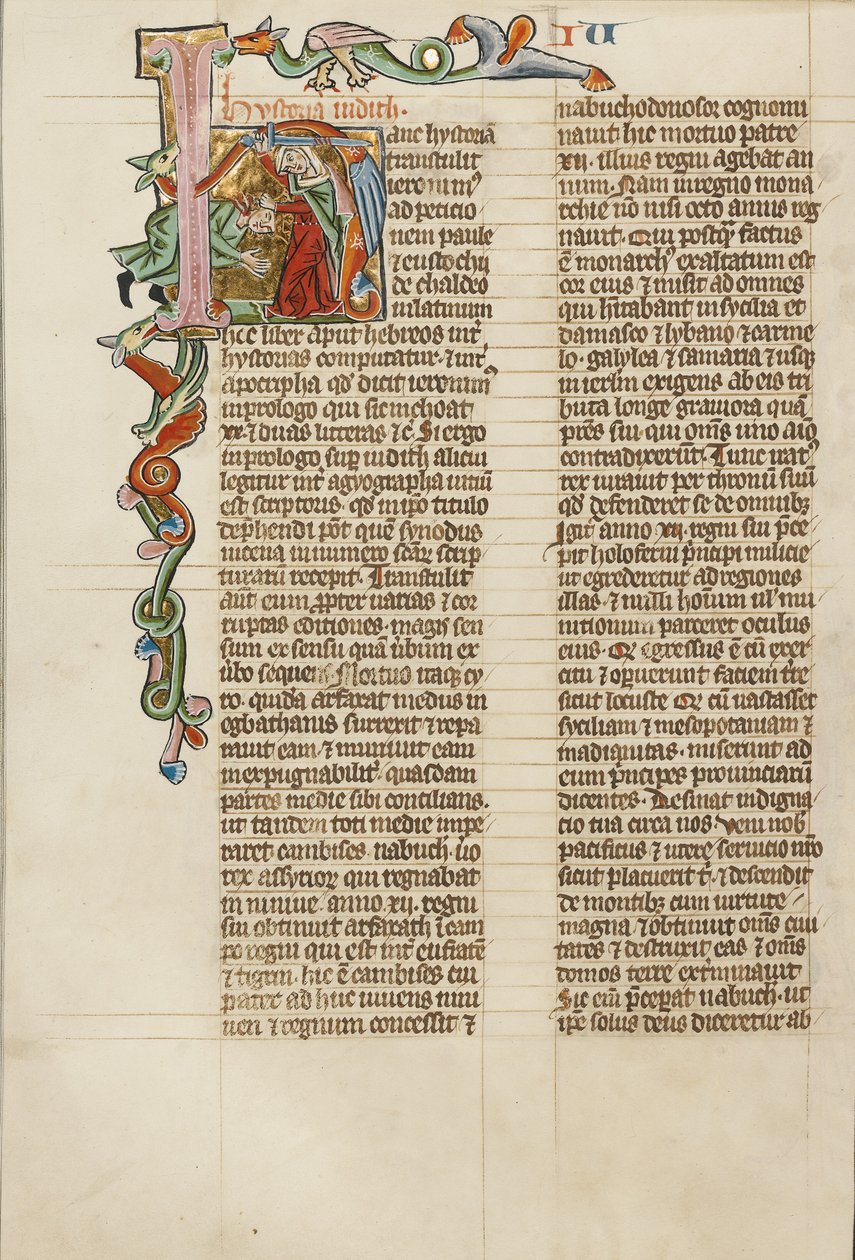 IU
hystoria iudith·
anc hystoriā
transtulit
ieronim⁹
ad peticio
nem paule
⁊ eustochii
de chaldeo
in latinum
hec liber aput hebreos int̄
hystorias computatur· ⁊ int̄
apocripha qd̄ dicit ieronim⁹
in prologo qui sic inchoat
xx· ⁊ duas litteras ⁊c̄ Si ergo
in prologo sup̄ iudith alicui
legitur int̄ agyographa iuciū
est scriptoris· qd̄ in ip̄o titulo
dep̄hendi pōt quē synodus
nicena in numero scāꝝ scrip
turarū recepit· Transtulit
aūt eum ꝓpter uarias ⁊ cor
ruptas editiones· magis sen
sum ex sensu quā ūbum ex
ūbo sequens· Mortuo itaqꝫ cy
ro· quidā arfaxat medus in
egbathanis surrexit ⁊ repa
rauit eam· ⁊ muniuit eam
inexpugnabilit̄· quasdam
partes medie sibi concilians·
ut tandem toti medie impe
raret cambises· nabuch· ūo
rex assyrioꝝ qui regnabat
in niniue· anno xii· regni
sui obtinuit arfaxath ī cam
po regni qui est int̄ eufratē
⁊ tigrin· hic ē cambises cui
pater ad huc uiuens nini
uen ⁊ regnum concessit ⁊
nabuchodonosor cognomi
nauit hic mortuo patre
xii· illius regni agebat an
num· Nam in regno mona
rchie nō nisi octo annis reg
nauit· Qui postqꝫ factus
ē monarch⁹ exaltatum est
cor eius ⁊ misit ad omnes
qui hītabant in sycilia et
damasco ⁊ lybano ⁊ carme
lo· galylea ⁊ samaria ⁊ usqꝫ
in ierl̄m exigens ab eis tri
buta longe grauiora quā
p̄res sui· qui om̄s uno aīo
contradixerūt· Tunc irat⁹
rex iurauit per thronū suū
qd̄ defenderet se de omnibꝫ
Igit̄ anno xii· regni sui p̄ce
pit holoferni p̄ncipi milicie
ut egrederetur ad regiones
illas· ⁊ nulli hoīum ul̄ mu
nitionum parceret oculus
eius· Qr̄ egressus ē cū exer
citu ⁊ op̄uerunt faciem tr̄e
sicut locuste Qr̄ cū uastasset
syciliam ⁊ mesopotaniam ⁊
madianitas· miserunt ad
eum p̄ncipes prouinciarū
dicentes· Desinat indigna
cio tua circa nos· Veni nob̄
pacificus ⁊ utere seruicio nr̄o
sicut placuerit t̄· ⁊ descendit
de montibꝫ cum uirtute
magna ⁊ obtinuit om̄s ciui
tates ⁊ destruxit eas ⁊ om̄s
domos terre ext̄minauit
Sic enī p̄cep̄at nabuch· ut
ip̄e solus deus diceretur ab